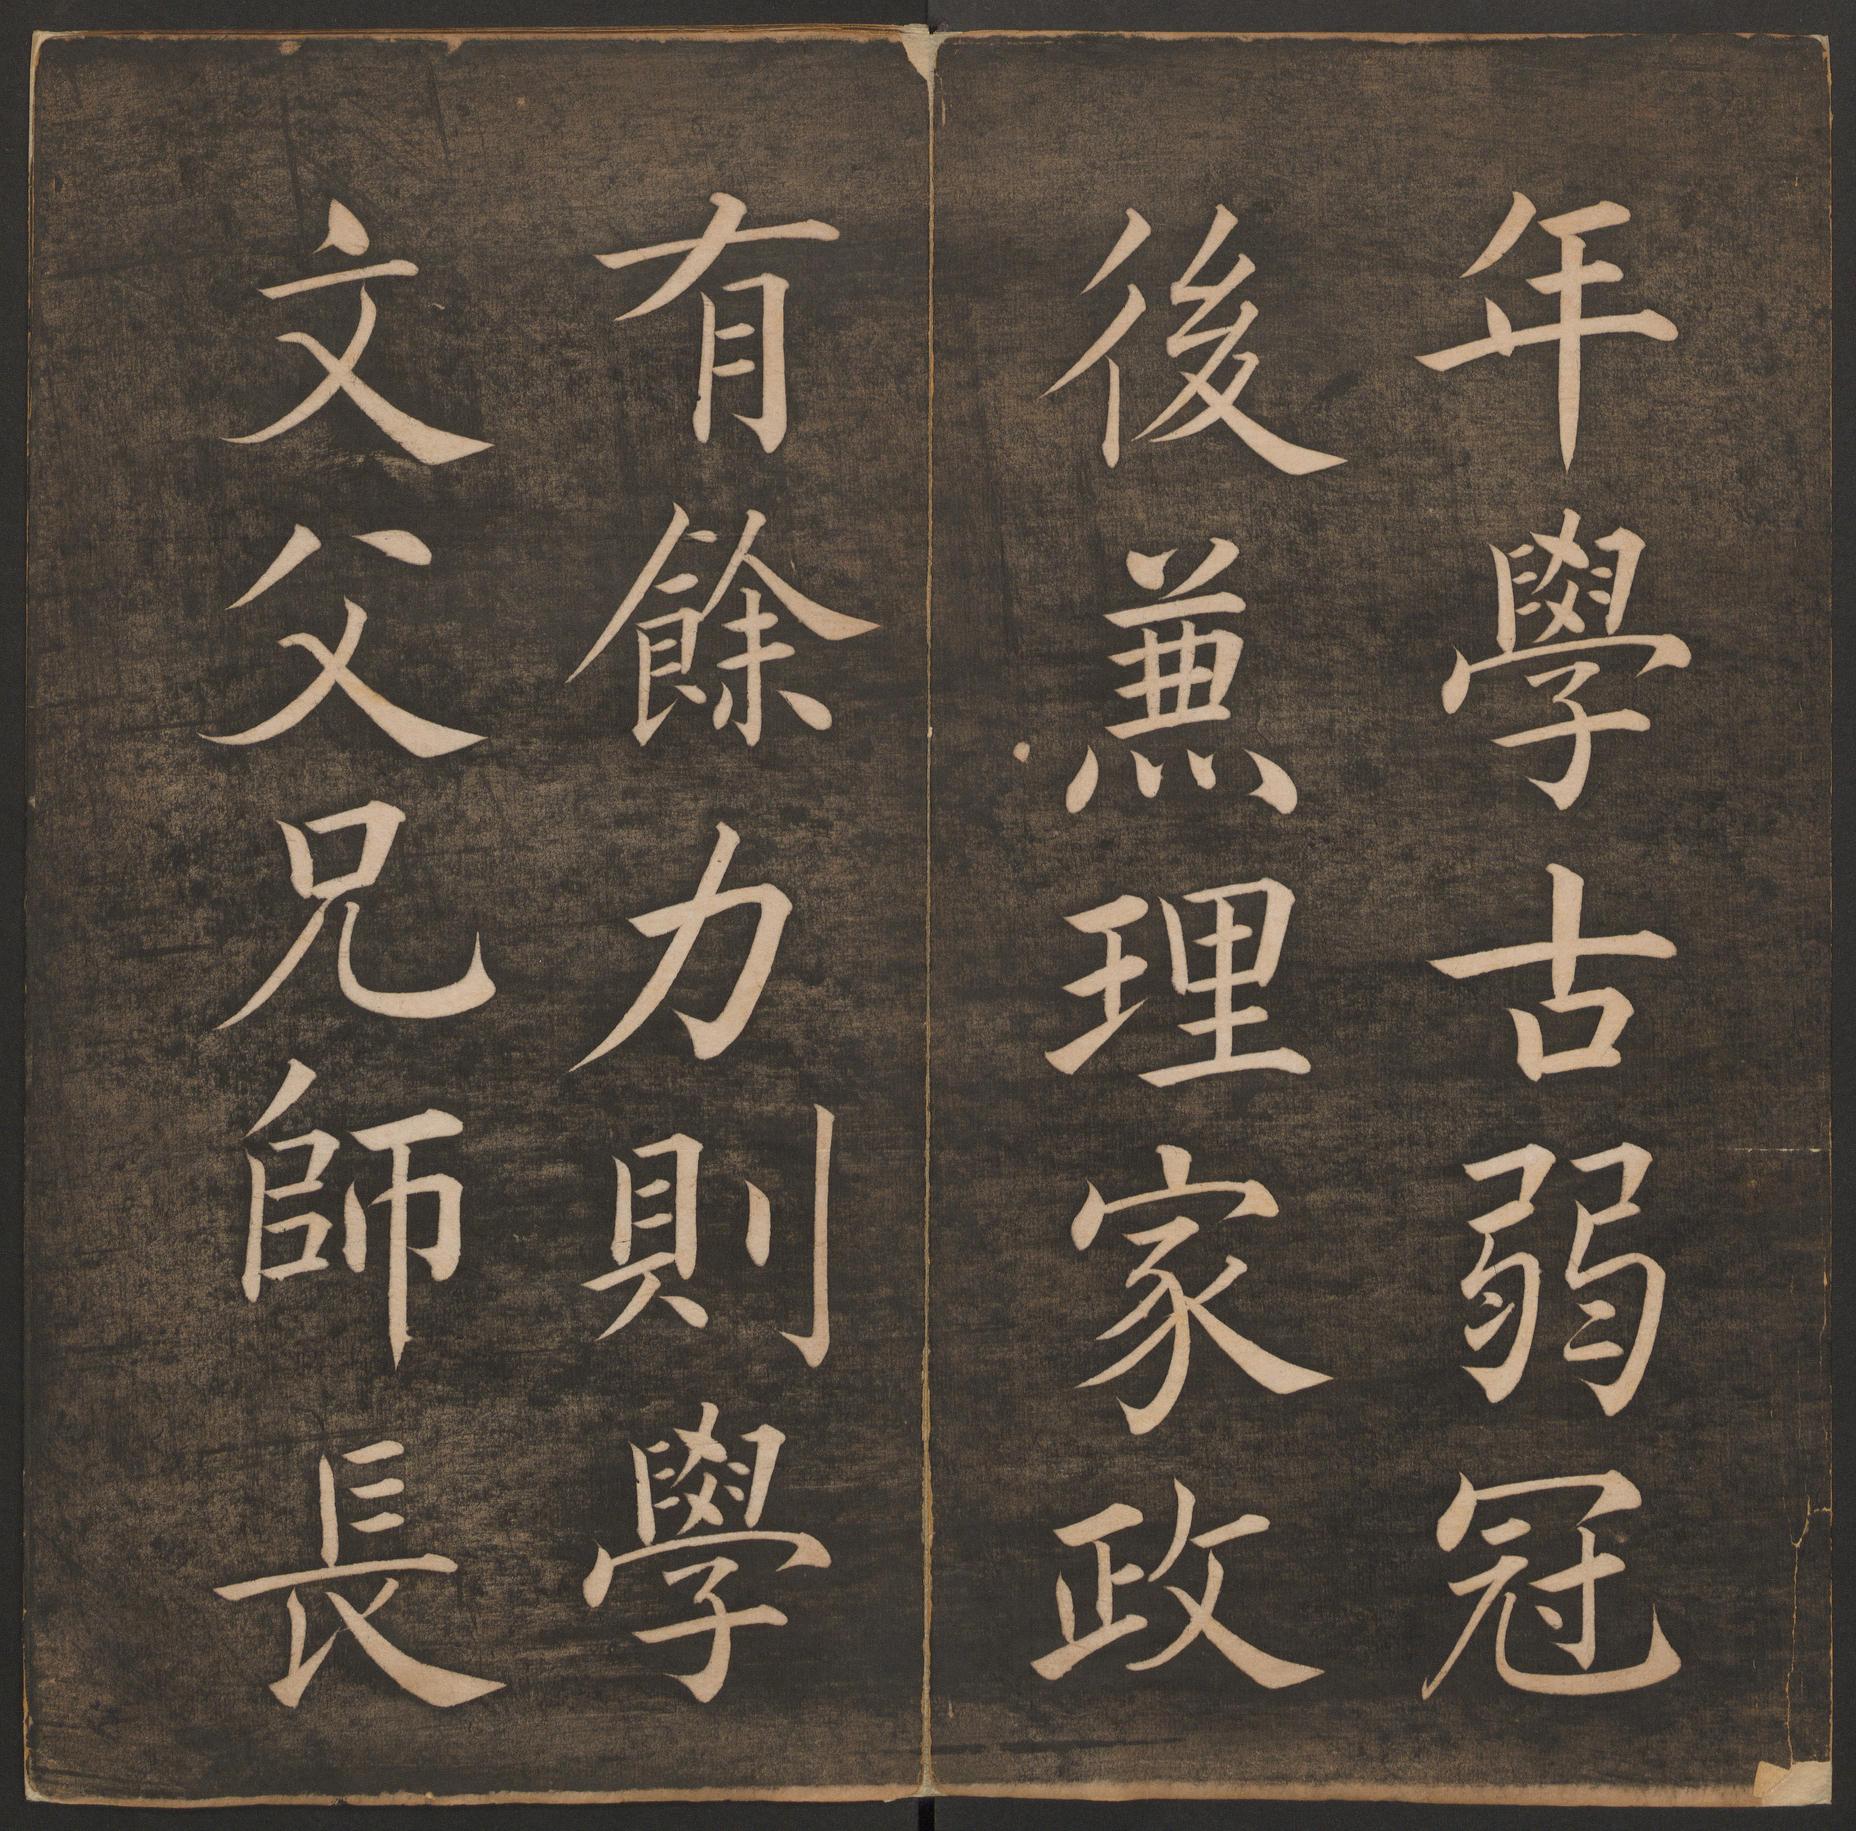 年學古弱冠
後蒹理家政
有餘力則學
文父兄師長